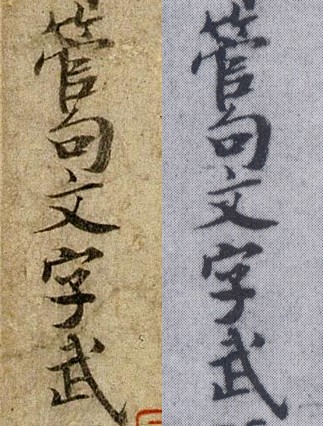 管句文字武
管句文字武